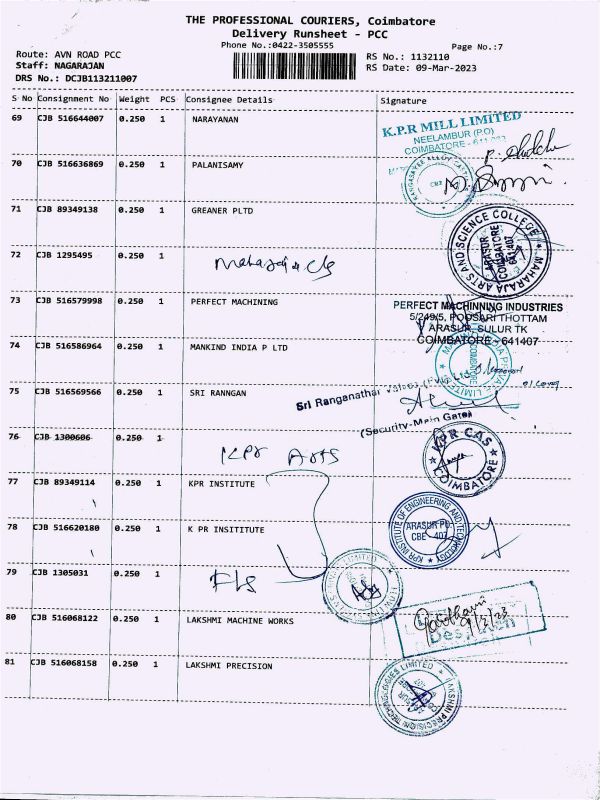 THE PROFESSIONAL COURIERS, Coimbatore
Delivery Runsheet - PCC
Phone No.:0422-3505555
Page No.:7
Route: AVN ROAD PCC
Staff: NAGARAJAN
DRS No.: DCJB113211007
RS No.: 1132110
RS Date: 09-Mar-2023
S No Consignment No Weight PCS Consignee Details Signature
69 CJB 516644007 0.250 1 NARAYANAN
K.P.R MILL LIMITED
NEELAMBUR (P.O)
COIMBATORE - 641
70 CJB 516636869 0.250 1 PALANISAMY
CBE
71 CJB 89349138 0.250 1 GREANER PLTD
MAHARAJA ARTS AND SCIENCE COLLEGE
ARASUR
COIMBATORE
641 407
72 CJB 1295495 0.250 1
73 CJB 516579998 0.250 1 PERFECT MACHINING
PERFECT MACHINNING INDUSTRIES
5/249/5, POOSARI THOTTAM
ARASUR, SULUR TK
COIMBATORE - 641407
74 CJB 516586964 0.250 1 MANKIND INDIA P LTD
COIMBATORE
75 CJB 516569566 0.250 1 SRI RANNGAN
Sri Ranganathar Valves (Pvt) Ltd
(Security-Main Gate)
76 CJB 1300606 0.250 1 KPR Arts
KPR CAS
COIMBATORE
77 CJB 89349114 0.250 1 KPR INSTITUTE
78 CJB 516620180 0.250 1 K PR INSITITUTE
KPR INSTITUTE OF ENGINEERING AND TECHNOLOGY
ARASUR PO.
CBE - 407
79 CJB 1305031 0.250 1
LIMITED
80 CJB 516068122 0.250 1 LAKSHMI MACHINE WORKS
9/3/23
81 CJB 516068158 0.250 1 LAKSHMI PRECISION
LAKSHMI PRECISION TECHNOLOGIES LIMITED